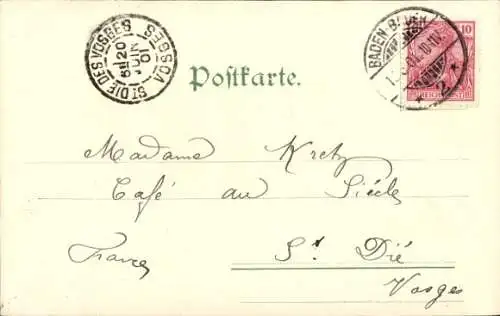 ST DIE DES VOSGES
VOSGES
5E 20
JUIN
01
BADEN-BADEN
10
Postkarte.
Madame Kretz
Café au Siècle
St Dié
France
Vosges